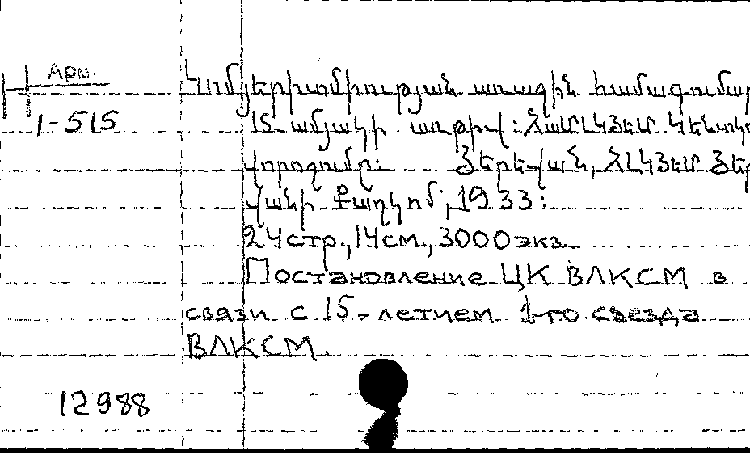 Арм.
1-515
Կոմյերիտմիության առաջին համագումար
15-ամյակի առթիվ: ՀամԼԿՅԵՄ Կենտկ
վորոշումը: Յերեվան, ՀԼԿՅԵՄ Յեր
վանի Քաղկոմ, 1933:
24 стр., 14 см., 3000 экз.
Постановление ЦК ВЛКСМ в
связи с 15-летием 1-го съезда
ВЛКСМ.
12988